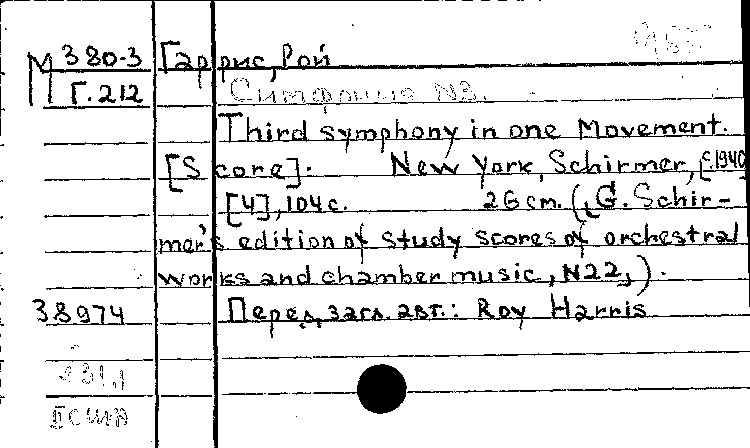 М 380-3 Гаррис, Рой
Г.212 Симфония №3.
Third symphony in one Movement.
[Score]. New York, Schirmer, [c.1940
[4], 104 с. 26 cm. (G. Schir-
mer's edition of study scores of orchestral
works and chamber music, N22,).
38974 Перед загл. авт.: Roy Harris
США